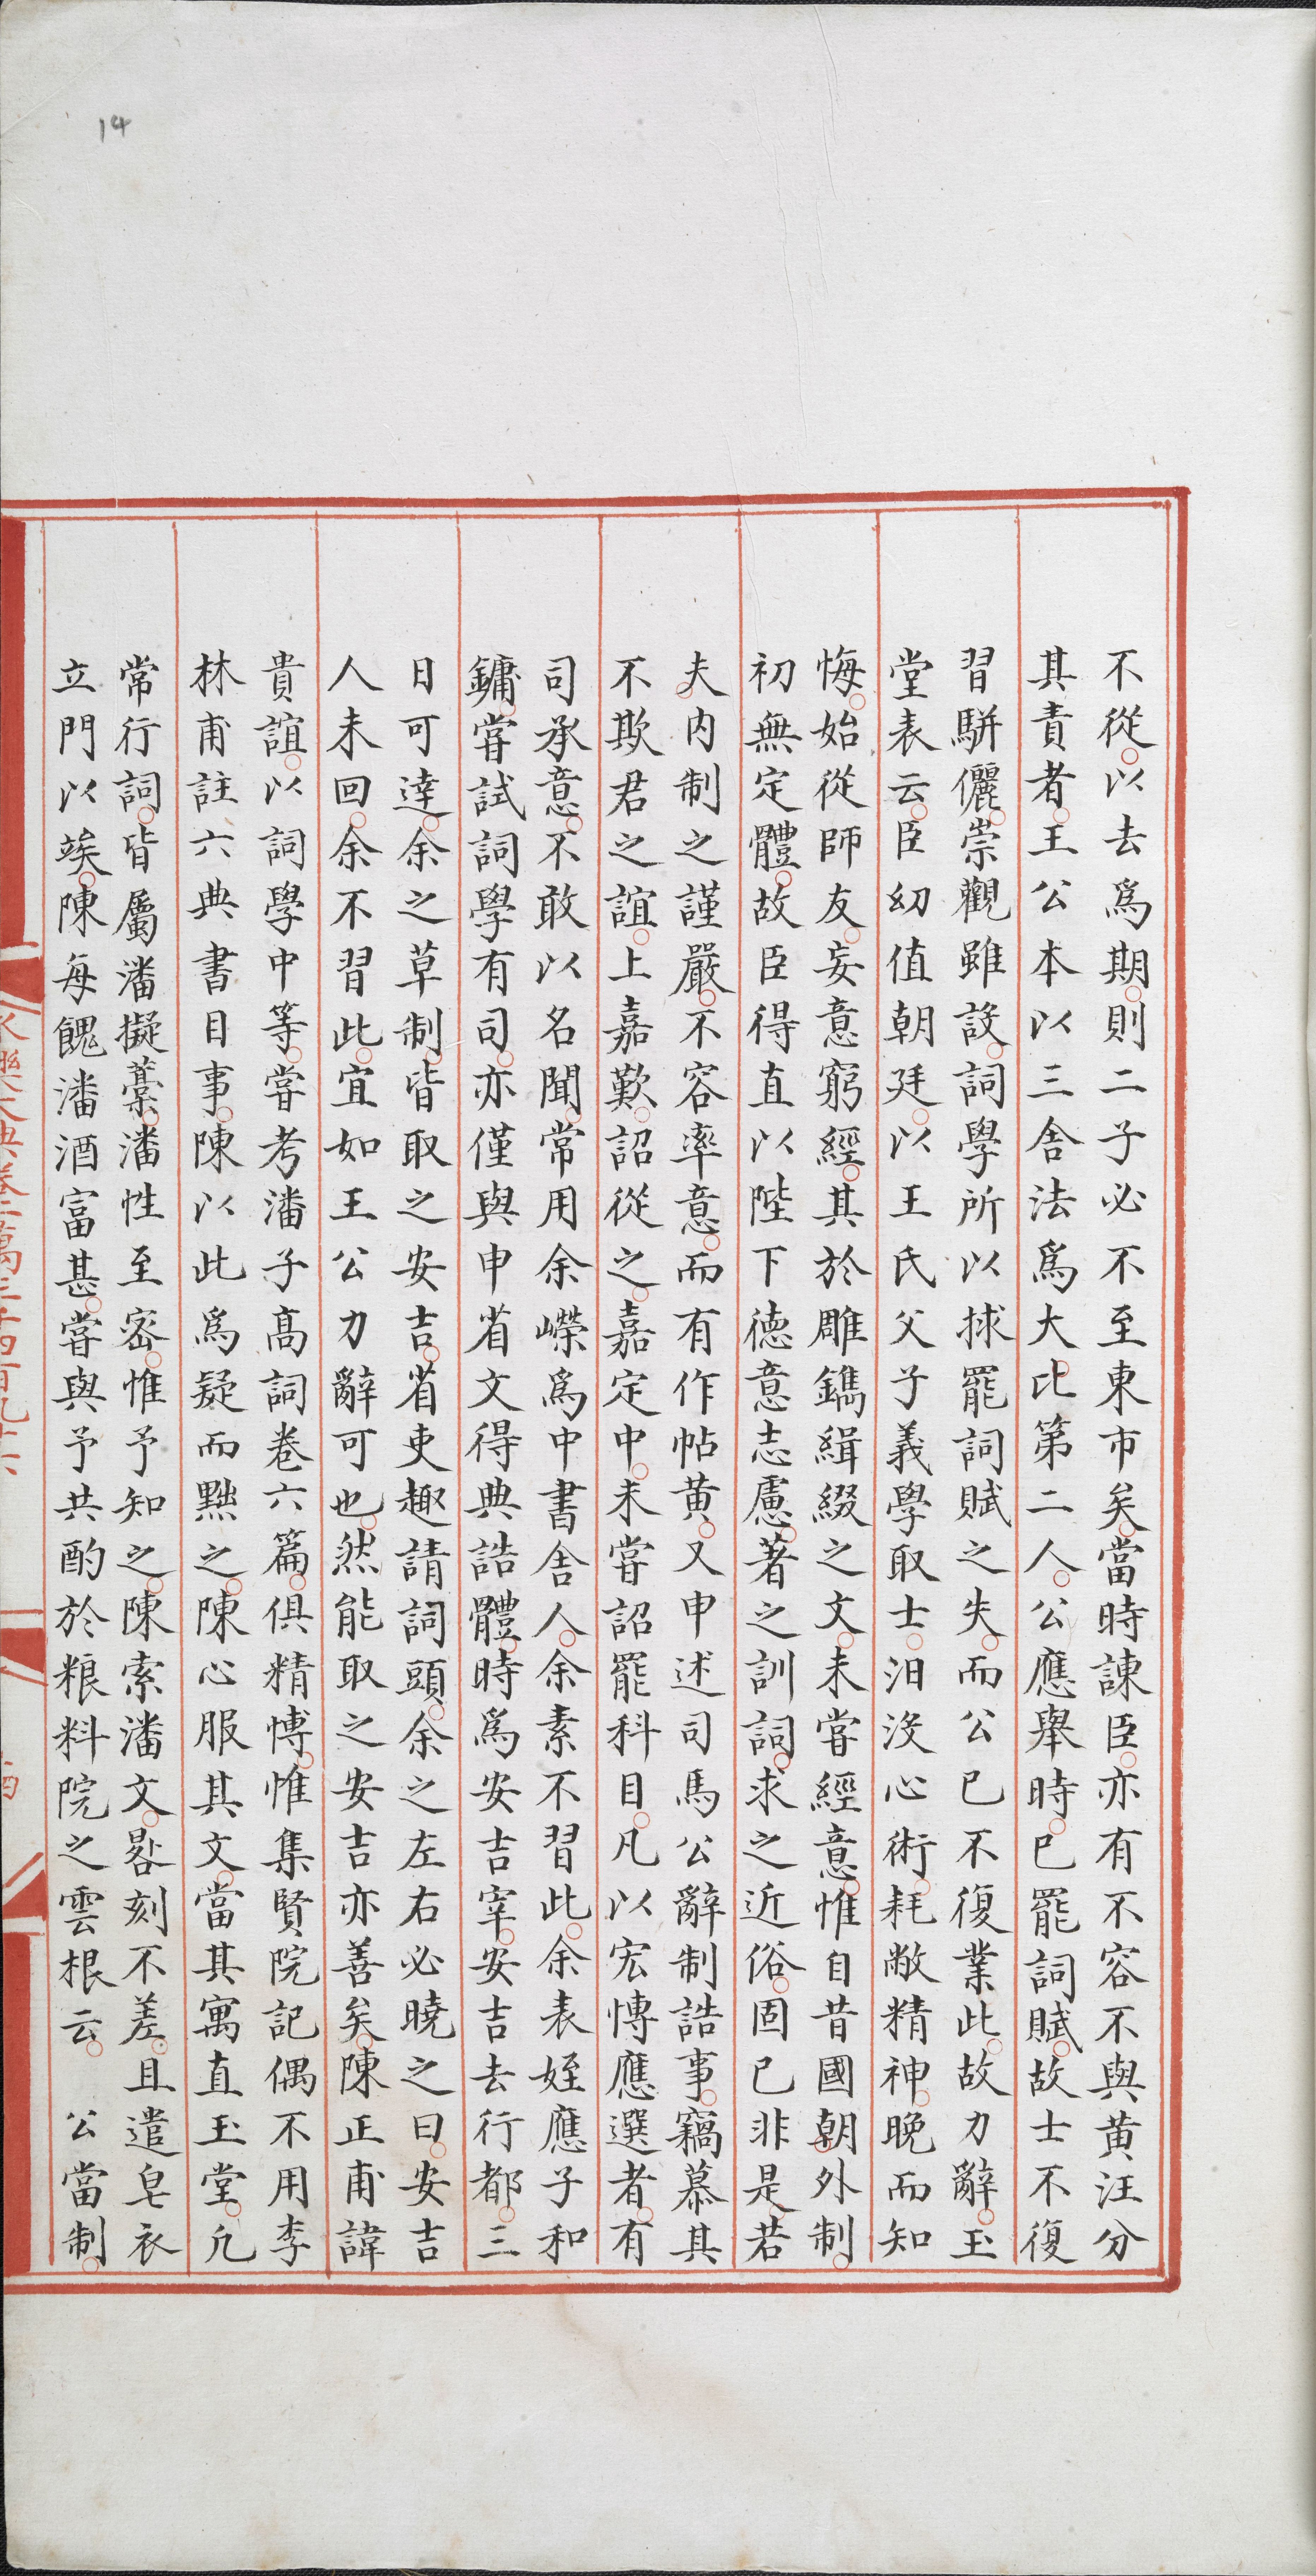 14
不從以去爲期則二子必不至東市矣當時諫臣亦有不容不與黄汪分
其責者王公本以三舍法爲大比第二人公應舉時已罷詞賦故士不復
習駢儷崇觀雖設詞學所以捄罷詞賦之失而公已不復業此故力辭玉
堂表云臣幼值朝廷以王氏父子義學取士汩没心術耗敝精神晚而知
悔始從師友妄意窮經其於雕鐫緝綴之文未嘗經意惟自昔國朝外制
初無定體故臣得直以陛下德意志慮著之訓詞求之近俗固已非是若
夫内制之謹嚴不容率意而有作帖黄又申述司馬公辭制誥事竊慕其
不欺君之誼上嘉歎詔從之嘉定中未嘗詔罷科目凡以宏博應選者有
司承意不敢以名聞常用余嶸爲中書舍人余素不習此余表姪應子和
鏞嘗試詞學有司亦僅與申省文得典誥體時爲安吉宰安吉去行都三
日可達余之草制皆取之安吉省吏趣請詞頭余之左右必曉之曰安吉
人未回余不習此宜如王公力辭可也然能取之安吉亦善矣陳正甫諱
貴誼以詞學中等嘗考潘子高詞卷六篇俱精博惟集賢院記偶不用李
林甫註六典書目事陳以此爲疑而黜之陳心服其文當其寓直玉堂凡
常行詞皆屬潘擬藁潘性至密惟予知之陳索潘文晷刻不差且遣皂衣
立門以竢陳每餽潘酒富甚嘗與予共酌於粮料院之雲根云　公當制
永樂大典卷二萬三千四百九十六